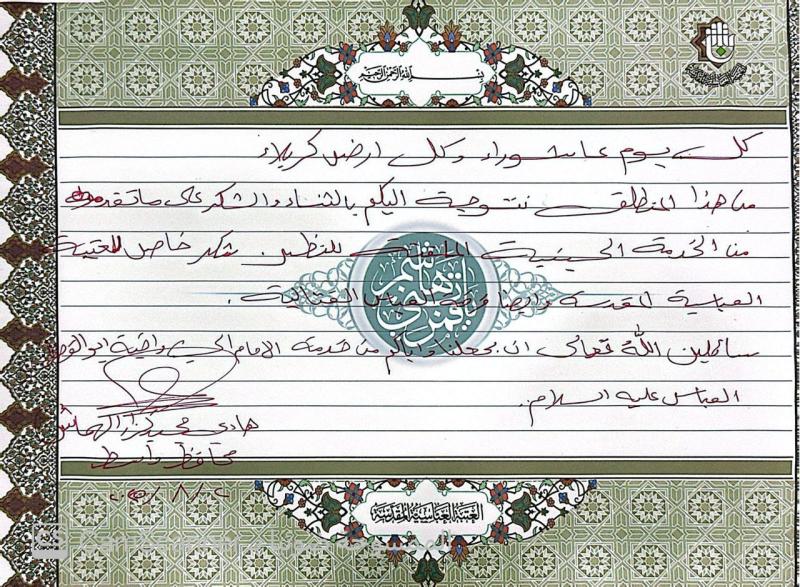 بسم الله الرحمن الرحيم
كل يوم عاشوراء وكل ارض كربلاء
من هذا المنطلق نتوجه اليكم بالثناء والشكر على ماتقدموه
من الخدمة الحسينية شكر خاص للعتبة
العباسية المقدسة وايضا العباس القتالية.
سائلين الله تعالى ان يجعلنا واياكم من خدمة الامام الحسين واخيه ابو الفضل
العباس عليه السلام.
هادي مجيد كزار الهماشي
محافظ واسط
العتبة العباسية المقدسة